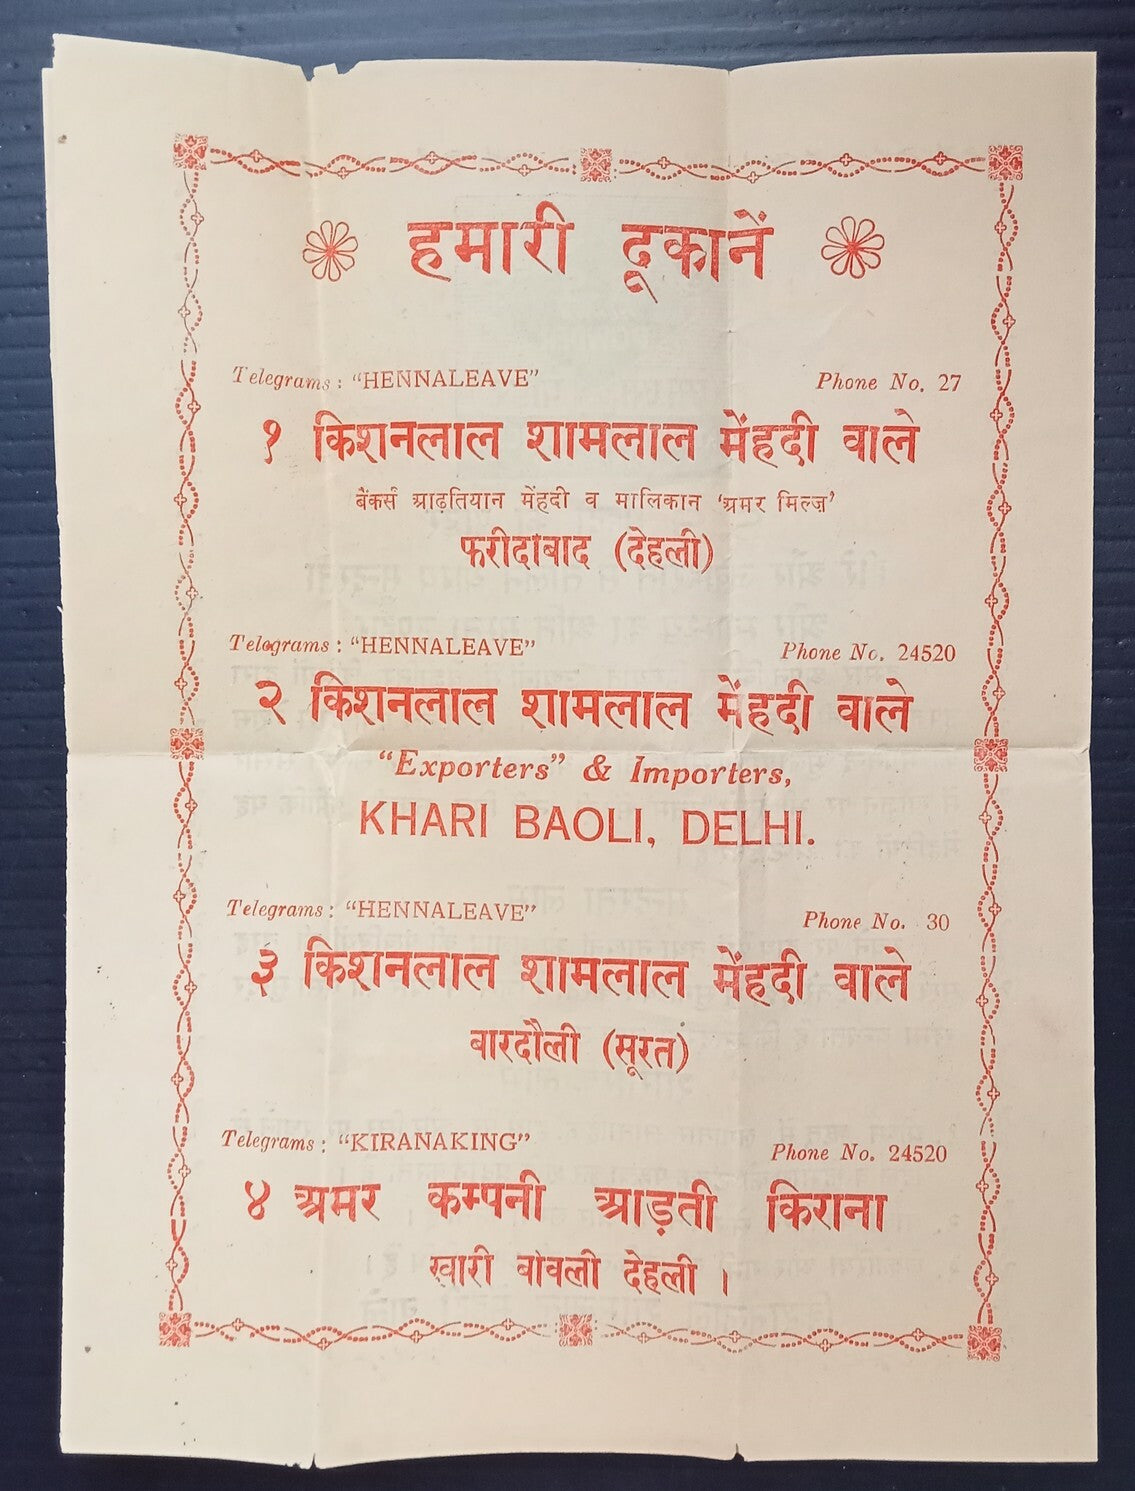 हमारी दूकानें
Telegrams : “HENNALEAVE” Phone No. 27
१ किशनलाल शामलाल मेंहदी वाले
बैंकर्स आढ़तियान मेंहदी व मालिकान ‘अमर मिल्ज़’
फरीदाबाद (देहली)
Telegrams : “HENNALEAVE” Phone No. 24520
२ किशनलाल शामलाल मेंहदी वाले
“Exporters” & Importers,
KHARI BAOLI, DELHI.
Telegrams : “HENNALEAVE” Phone No. 30
३ किशनलाल शामलाल मेंहदी वाले
बारदौली (सूरत)
Telegrams : “KIRANAKING” Phone No. 24520
४ अमर कम्पनी आड़ती किराना
खारी बावली देहली ।